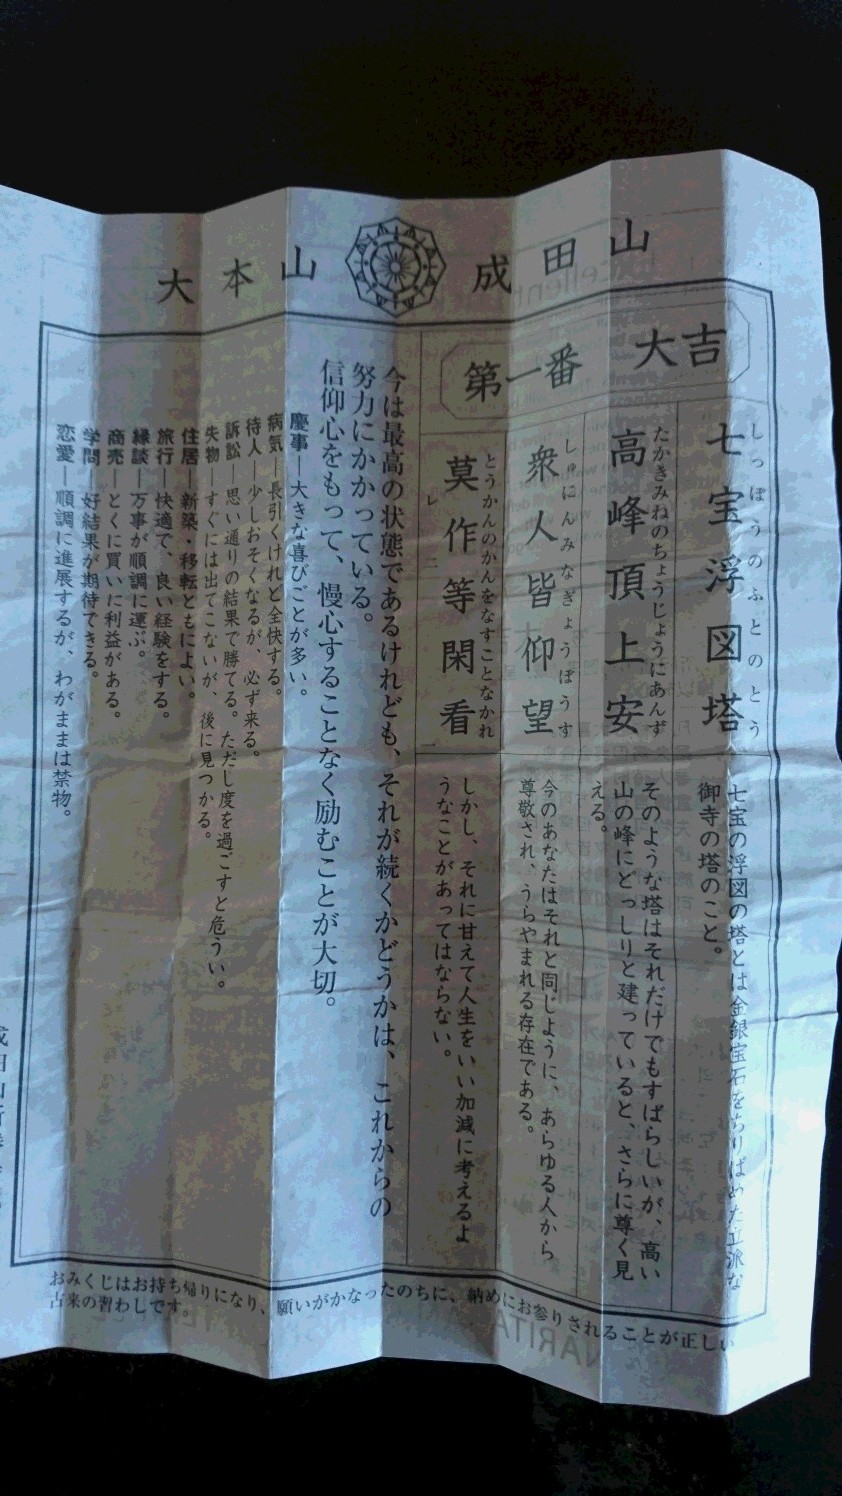 大本山 成田山
第一番 大吉
しっぽうのふとのとう
七宝浮図塔
七宝の浮図の塔とは金銀宝石をちりばめた立派な
御寺の塔のこと。
たかきみねのちょうじょうにあんず
高峰頂上安
そのような塔はそれだけでもすばらしいが、高い
山の峰にどっしりと建っていると、さらに尊く見
える。
しゅにんみなぎょうぼうす
衆人皆仰望
今のあなたはそれと同じように、あらゆる人から
尊敬され、うらやまれる存在である。
とうかんのかんをなすことなかれ
莫レ作二等閑看一
しかし、それに甘えて人生をいい加減に考えるよ
うなことがあってはならない。
今は最高の状態であるけれども、それが続くかどうかは、これからの
努力にかかっている。
信仰心をもって、慢心することなく励むことが大切。
慶事―大きな喜びごとが多い。
病気―長引くけれど全快する。
待人―少しおそくなるが、必ず来る。
訴訟―思い通りの結果で勝てる。ただし度を過ごすと危うい。
失物―すぐには出てこないが、後に見つかる。
住居―新築・移転ともによい。
旅行―快適で、良い経験をする。
縁談―万事が順調に運ぶ。
商売―とくに買いに利益がある。
学問―好結果が期待できる。
恋愛―順調に進展するが、わがままは禁物。
おみくじはお持ち帰りになり、願いがかなったのちに、納めにお参りされることが正しい
古来の習わしです。